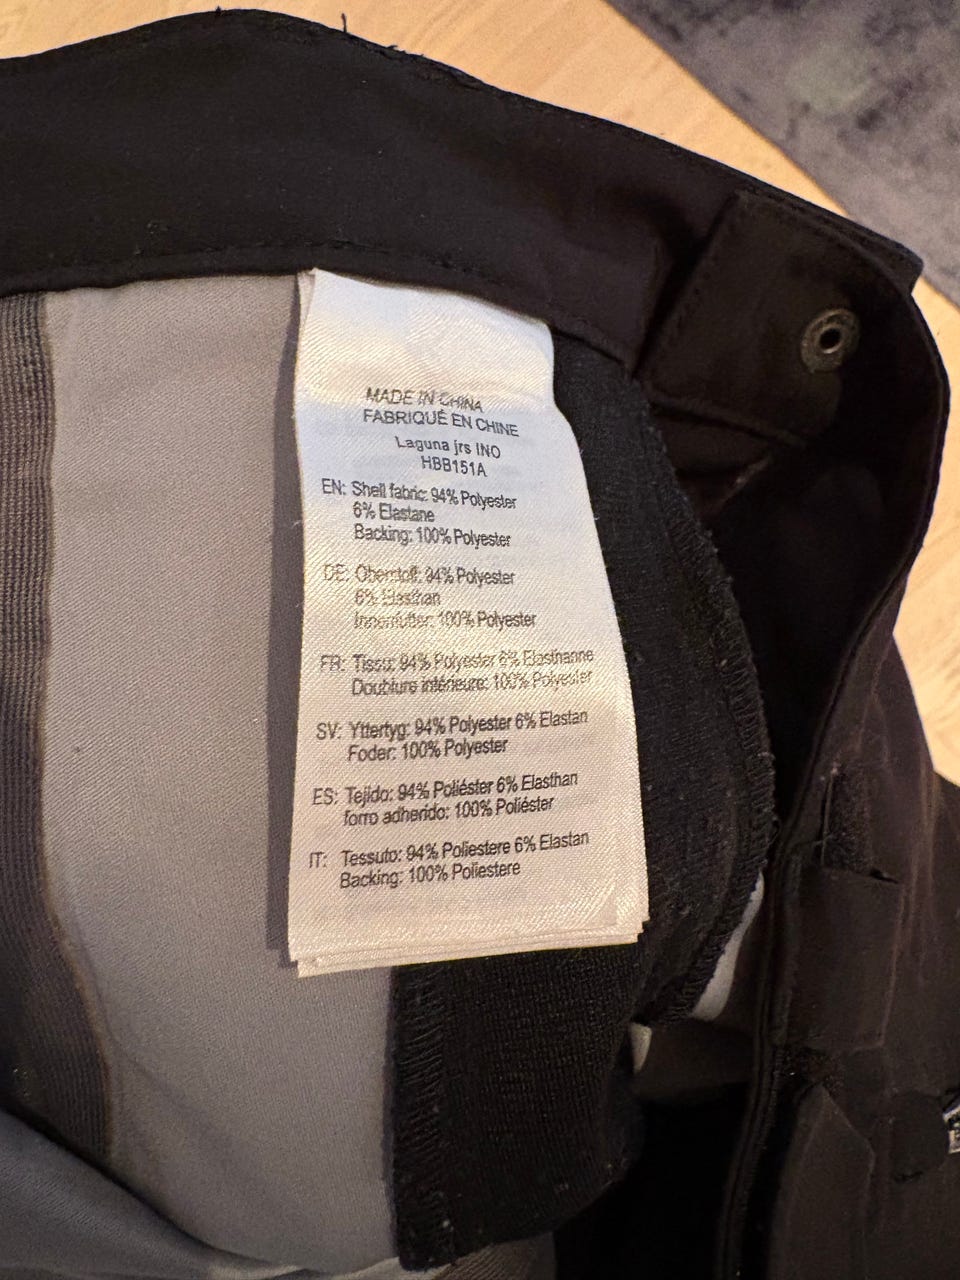 MADE IN CHINA
FABRIQUÉ EN CHINE
Laguna jrs INO
HBB151A
EN: Shell fabric: 94% Polyester
6% Elastane
Backing: 100% Polyester
DE: Oberstoff: 94% Polyester
6% Elasthan
Innenfutter: 100% Polyester
FR: Tissu: 94% Polyester 6% Elasthanne
Doublure intérieure: 100% Polyester
SV: Yttertyg: 94% Polyester 6% Elastan
Foder: 100% Polyester
ES: Tejido: 94% Poliéster 6% Elasthan
forro adherido: 100% Poliéster
IT: Tessuto: 94% Poliestere 6% Elastan
Backing: 100% Poliestere